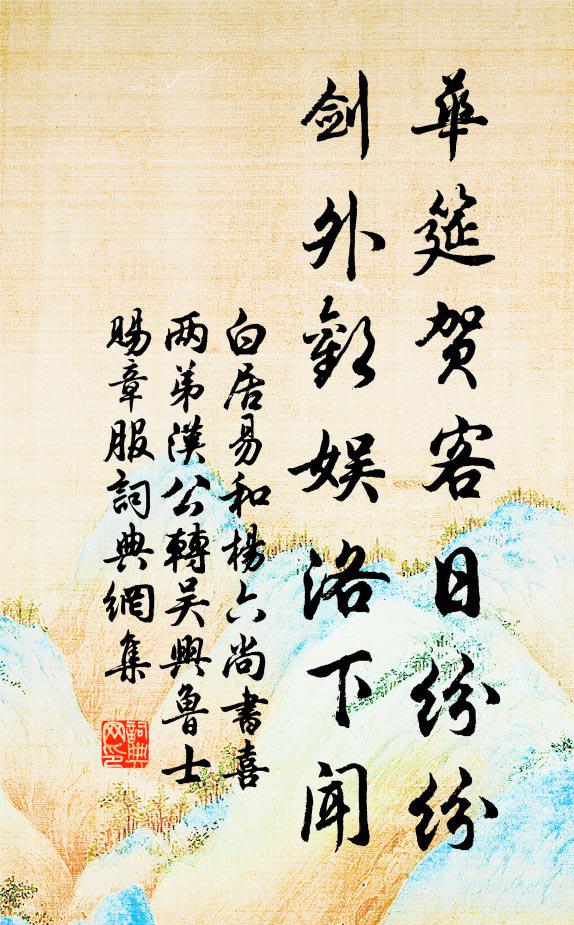 華筵賀客日紛紛
劍外歡娛洛下聞
白居易和楊六尚書喜
两弟漢公轉吴興魯士
賜章服詞典網集
詞典
网印